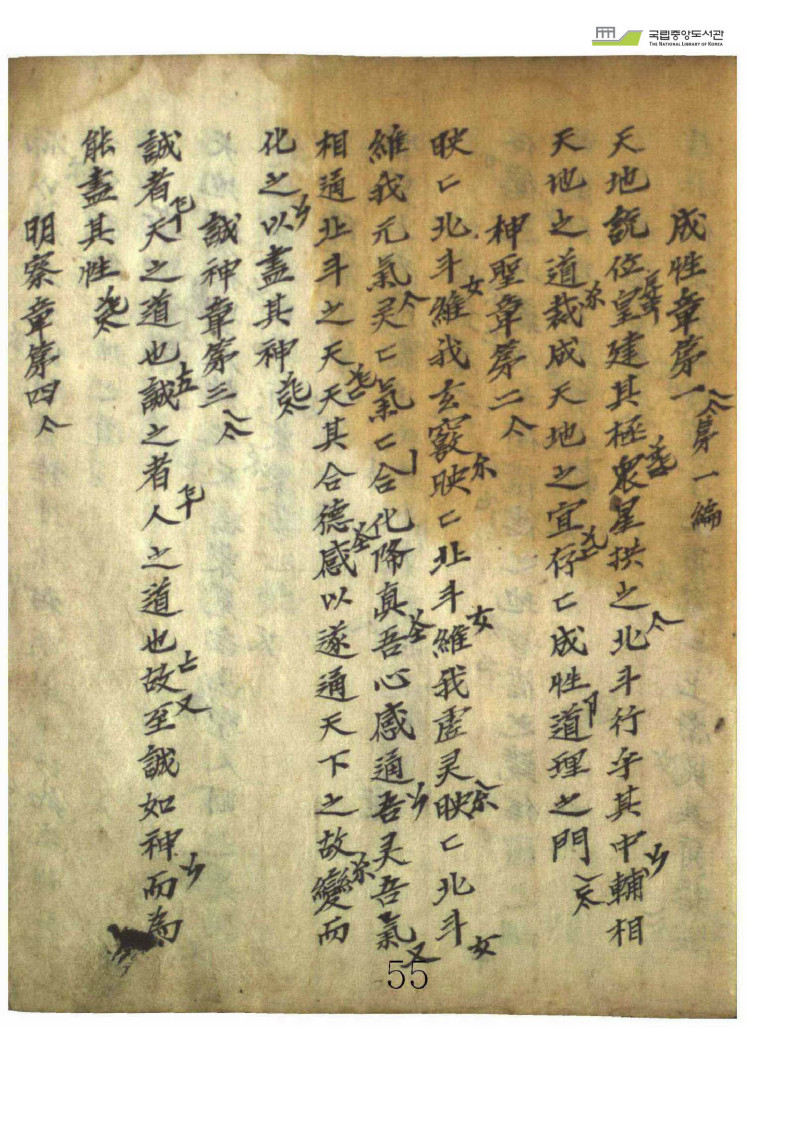 국립중앙도서관
THE NATIONAL LIBRARY OF KOREA
成性章第一 第一編
天地設位皇建其極衆星拱之北斗行乎其中輔相
天地之道裁成天地之宜存匕成性道理之門
神聖章第二
映匕北斗維我玄竅映匕北斗維我虛灵映匕北斗
維我元氣灵匕氣匕合化降眞吾心感通吾灵吾氣
相通北斗之天天其合德感以遂通天下之故變而
化之以盡其神
誠神章第三
誠者天之道也誠之者人之道也故至誠如神而為
能盡其性
明察章第四
55